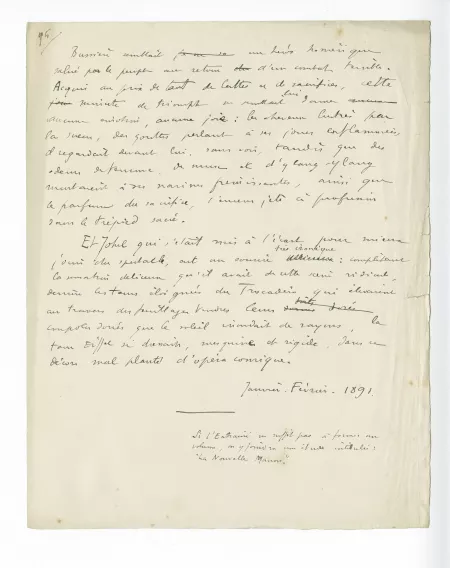 Bassité semblait, un héros homérique
salué par le peuple au retour d'un combat terrible.
Acquis au prix de tant de luttes et de sacrifices, cette
minute de triomphe ne semblait lui donner
aucune joie : les cheveux lustrés par
la sueur, des gouttes perlant à ses joues enflammées,
il regardait devant lui, sans voir, tandis que des
odeurs de femme, de musc et d'ylang-ylang
montaient à ses narines frémissantes, ainsi que
le parfum du sacrifice, l'encens jeté à profusion
dans le trépied sacré.
Et qui s'était mis à l'écart pour mieux
jouir du spectacle, eut un sourire très ironique : complétant
la sensation délicieuse qu'il avait de cette scène ridicule,
derrière les tours éloignées du Trocadéro qui élevaient
au travers des feuillages tendres leurs
coupoles dorées que le soleil inondait de rayons, la
tour Eiffel se dressait, mesquine et rigide, dans ce
décors mal planté d'opéra comique.
Janvier-Février 1891
Si l'Entraîné ne suffit pas à former un
volume, on y joindra une étude intitulée :
"La Nouvelle